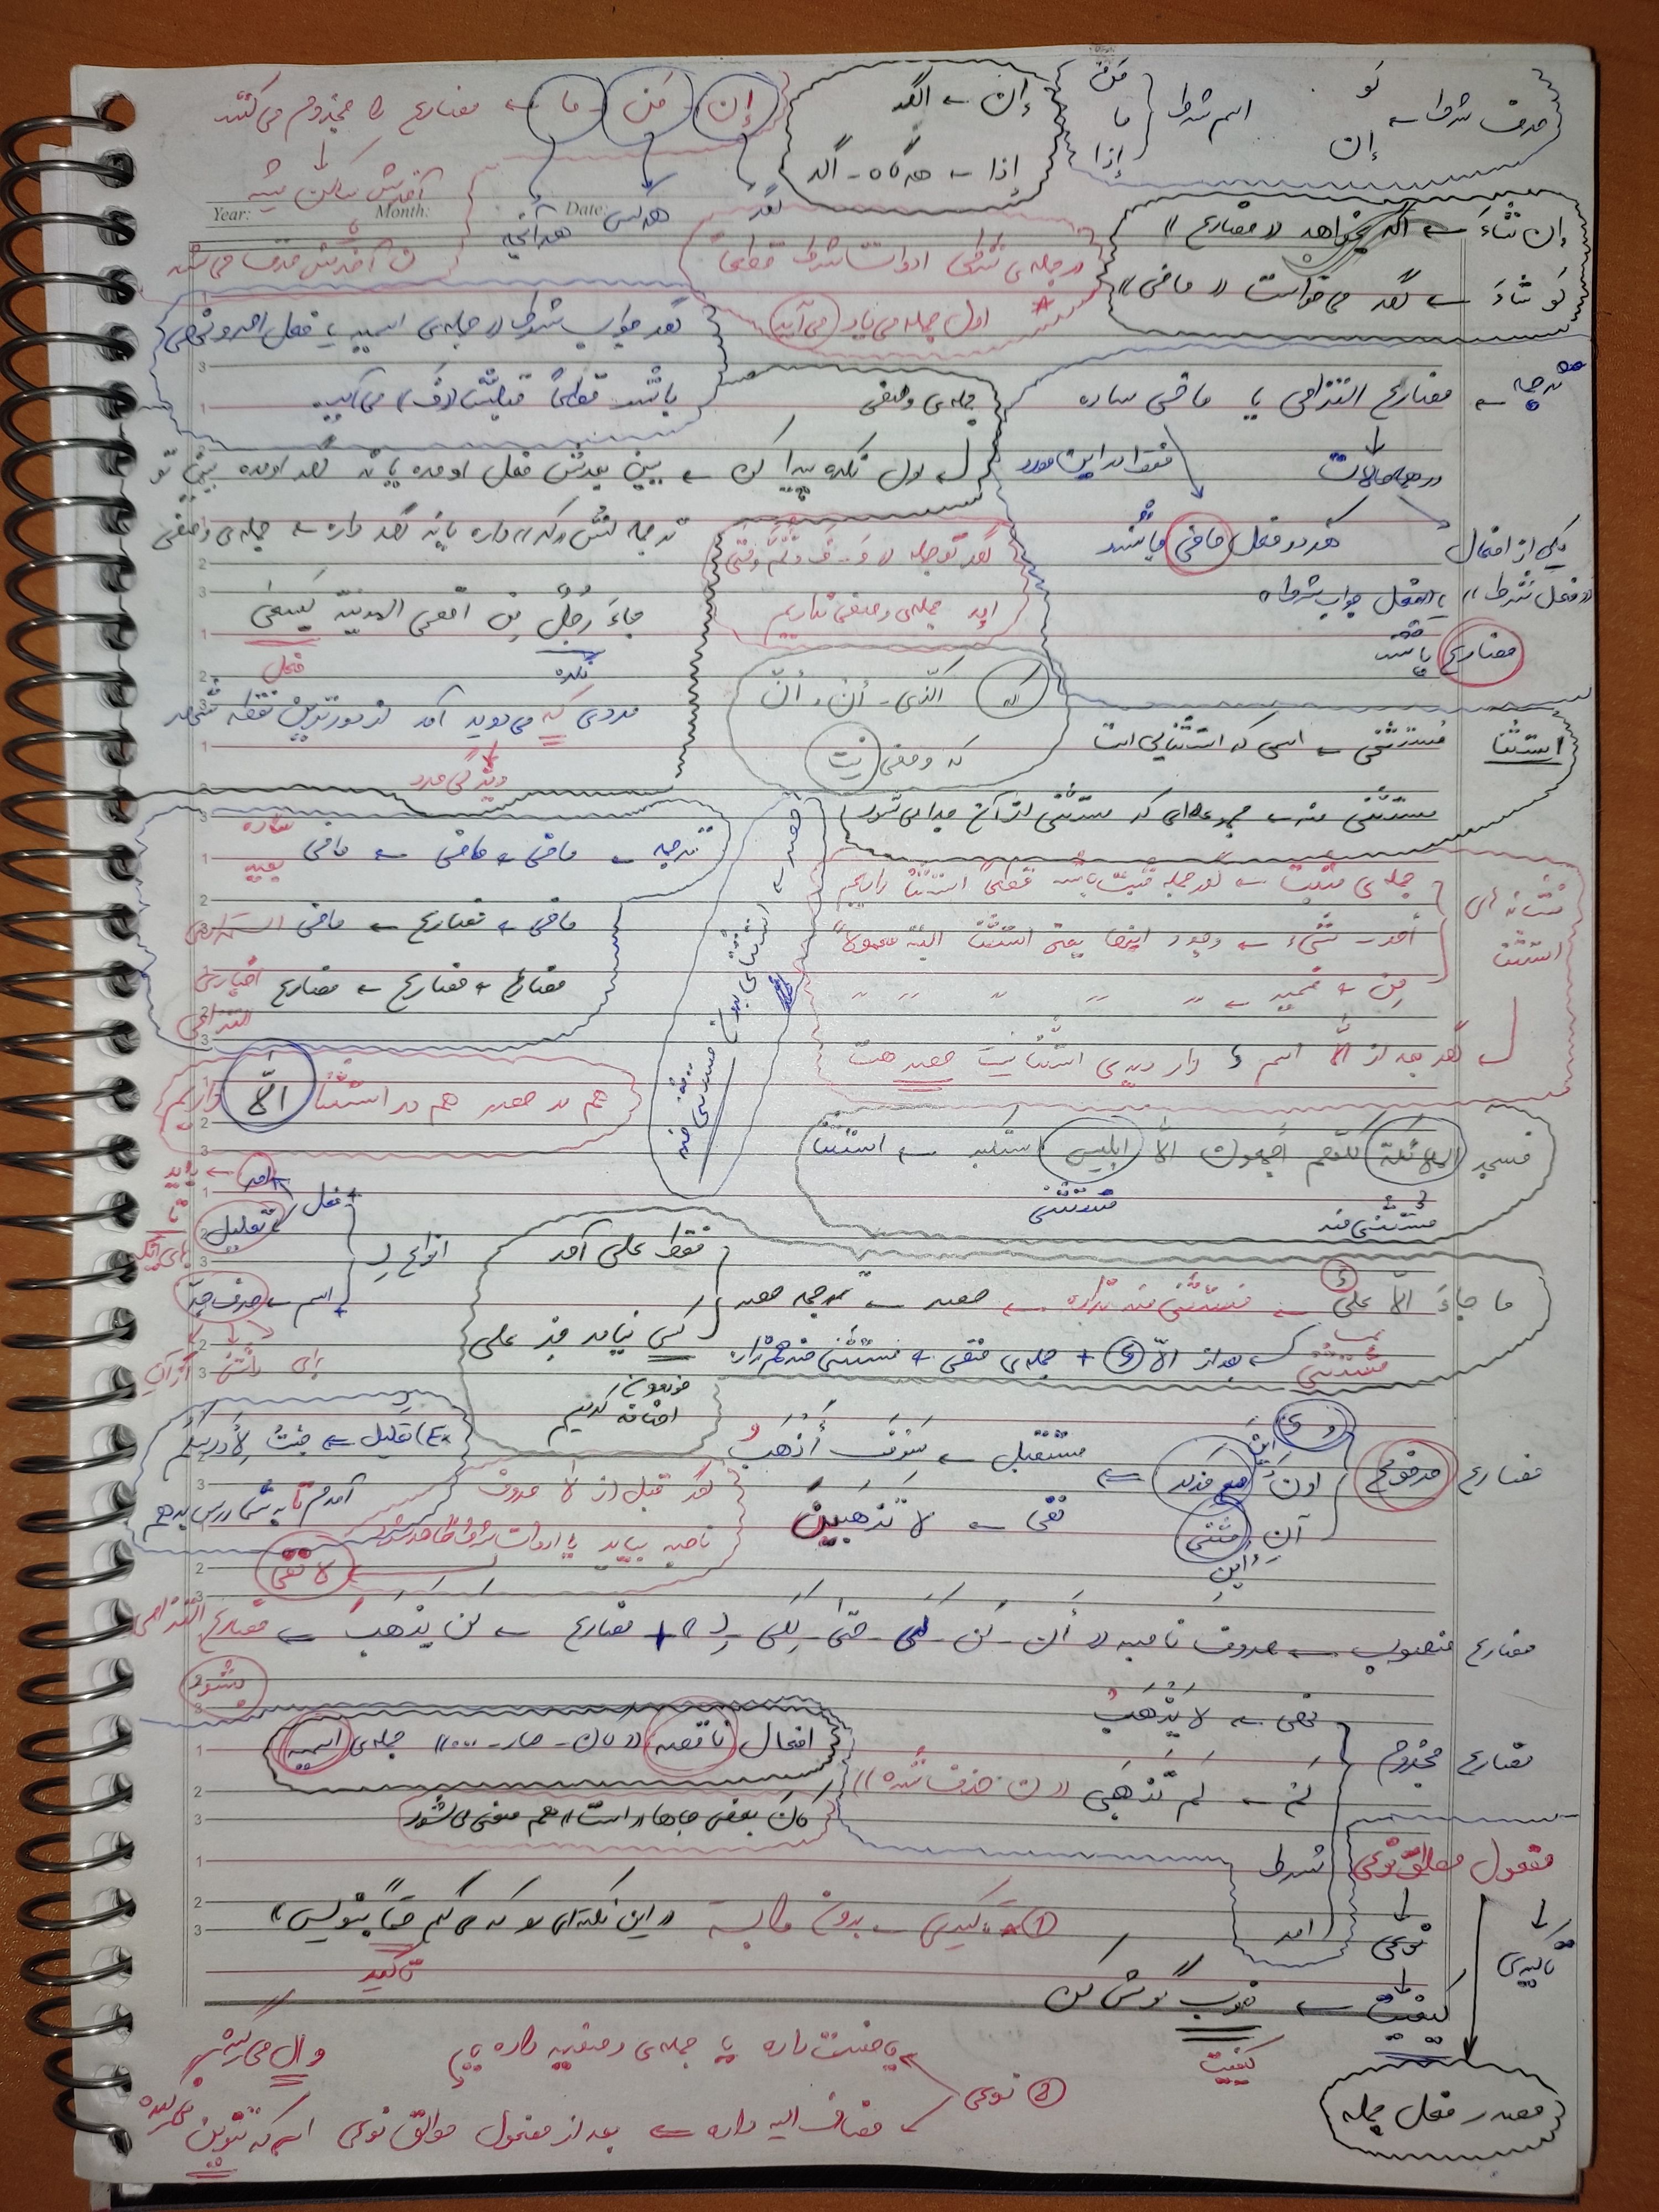 حرف شرط ← لَو
إن
اسم شرط
مَن
ما
إذا
إن ← اگر
إذا ← هرگاه - اگر
إن - مَن - ما ← مضارع را مجزوم می‌کنند
آخرش ساکن میشه
یا
ن آخرش حذف می‌شه
اگر
هرکس
هرآنچه
Year: Month: Date:
إن شاءَ ← اگر بخواهد «مضارع»
لَو شاءَ ← اگر می‌خواست «ماضی»
در جمله‌ی شرطی ادوات شرط قطعاً
اول جمله می‌آید
اگر جواب شرط «جمله‌ی اسمیه یا فعل امر و نهی
باشد قطعاً قبلش (فَ) می‌آید
ترجمه ← مضارع التزامی یا ماضی ساده
در همه حالات
فقط در این مورد
هر دو فعل ماضی باشند
یکی از افعال
«فعل شرط» یا «فعل جواب شرط»
مضارع باشد
جمله‌ی وصفی
اول نکره پیدا کن ← ببین بعدش فعل اومده یا نه اگر اومده ببین تو
ترجمه‌اش «که» داره یا نه اگر داره ← جمله‌ی وصفی
اگر تو جمله «وَ - فَ و ثُمَّ وقتی
اید جمله‌ی وصفی نداریم
جاءَ رَجُلٌ مِن أقصی المدینة یَسعَی
نکره
فعل
مردی که می‌دوید آمد از دورترین نقطه شهر
ویژگی مرد
که الّذی - أن - أنّ
که وصفی نیست
استثنا
مستثنی ← اسمی که استثنایی است
مستثنی منه ← مجموعه‌ای که مستثنی از آن جدا می‌شود
ترجمه ← ماضی + ماضی ← ماضی ساده
بعید
ماضی + مضارع ← ماضی استمراری
مضارع + مضارع ← مضارع اخباری
التزامی
حصر ← استثنای بدون مستثنی منه
نشانه‌های
استثنا
جمله‌ی مثبت ← اگر جمله مثبت باشه قطعاً استثنا داریم
أحد - شیء ← وجود اینها یعنی استثنا البته معمولاً
مِن + ضمیر ← " " " " "
اگر بعد از الّا اسم ـُ دار دیدی استثنا نیست حصر هست
هم در حصر هم در استثنا الّا داریم
فسجد الملائکة کلّهم أجمعون الّا ابلیس استکبر ← استثنا
مستثنی منه
مستثنی
انواع لِـ
+ فعل
امر ← باید
تعلیل
تا
برای اینکه
+ اسم ← حرف جرّ
برای داشتن از آن
ما جاءَ الّا علیٌ ← مستثنی منه نداره ← حصر ← ترجمه حصر
فقط علی آمد
کسی نیامد جز علی
خودمون
اضافه کردیم
مستثنی
بعد از الّا ـُ + جمله‌ی منفی + مستثنی منه هم نداره
مضارع مرفوع
ونَ جمع مذکر
آنِ مثنی
مستقبل ← سَوفَ أذهَبُ
نفی ← لا تَذهَبینَ
Ex) تعلیل ← جئتُ لِأدرسکم
آمدم تا به شما درس بدهم
اگر قبل از لا حروف
ناصبه بیاید یا ادوات شرط ظاهر شود
لا نفی
مضارع منصوب ← حروف ناصبه «أن - لَن - کَی - حتّی - لِکَی - لِـ» + مضارع ← لَن یَذهَبَ ← مضارع التزامی
میشود
مضارع مجزوم
نهی ← لا یَذهَبْ
لَم ← لَم تَذهَبی «ن حذف شده»
شرط
امر
افعال ناقصه «کان - صار - ...» جمله‌ی اسمیه
کانَ بعضی جاها «است» هم معنی می‌شود
مفعول مطلق نوعی
تاکیدی
نوعی
کیفیت ← خوب گوش کن
کیفیت
مصدر فعل جمله
① تاکیدی ← بدون وابسته «این نکته‌ای رو که می‌گم حتماً بنویس»
تاکید
② نوعی
یا صفت داره یا جمله‌ی وصفیه داره یا
مضاف الیه داره ← بعد از مفعول مطلق نوعی اسم که تنوین نمی‌گیره
و ال می‌گیره